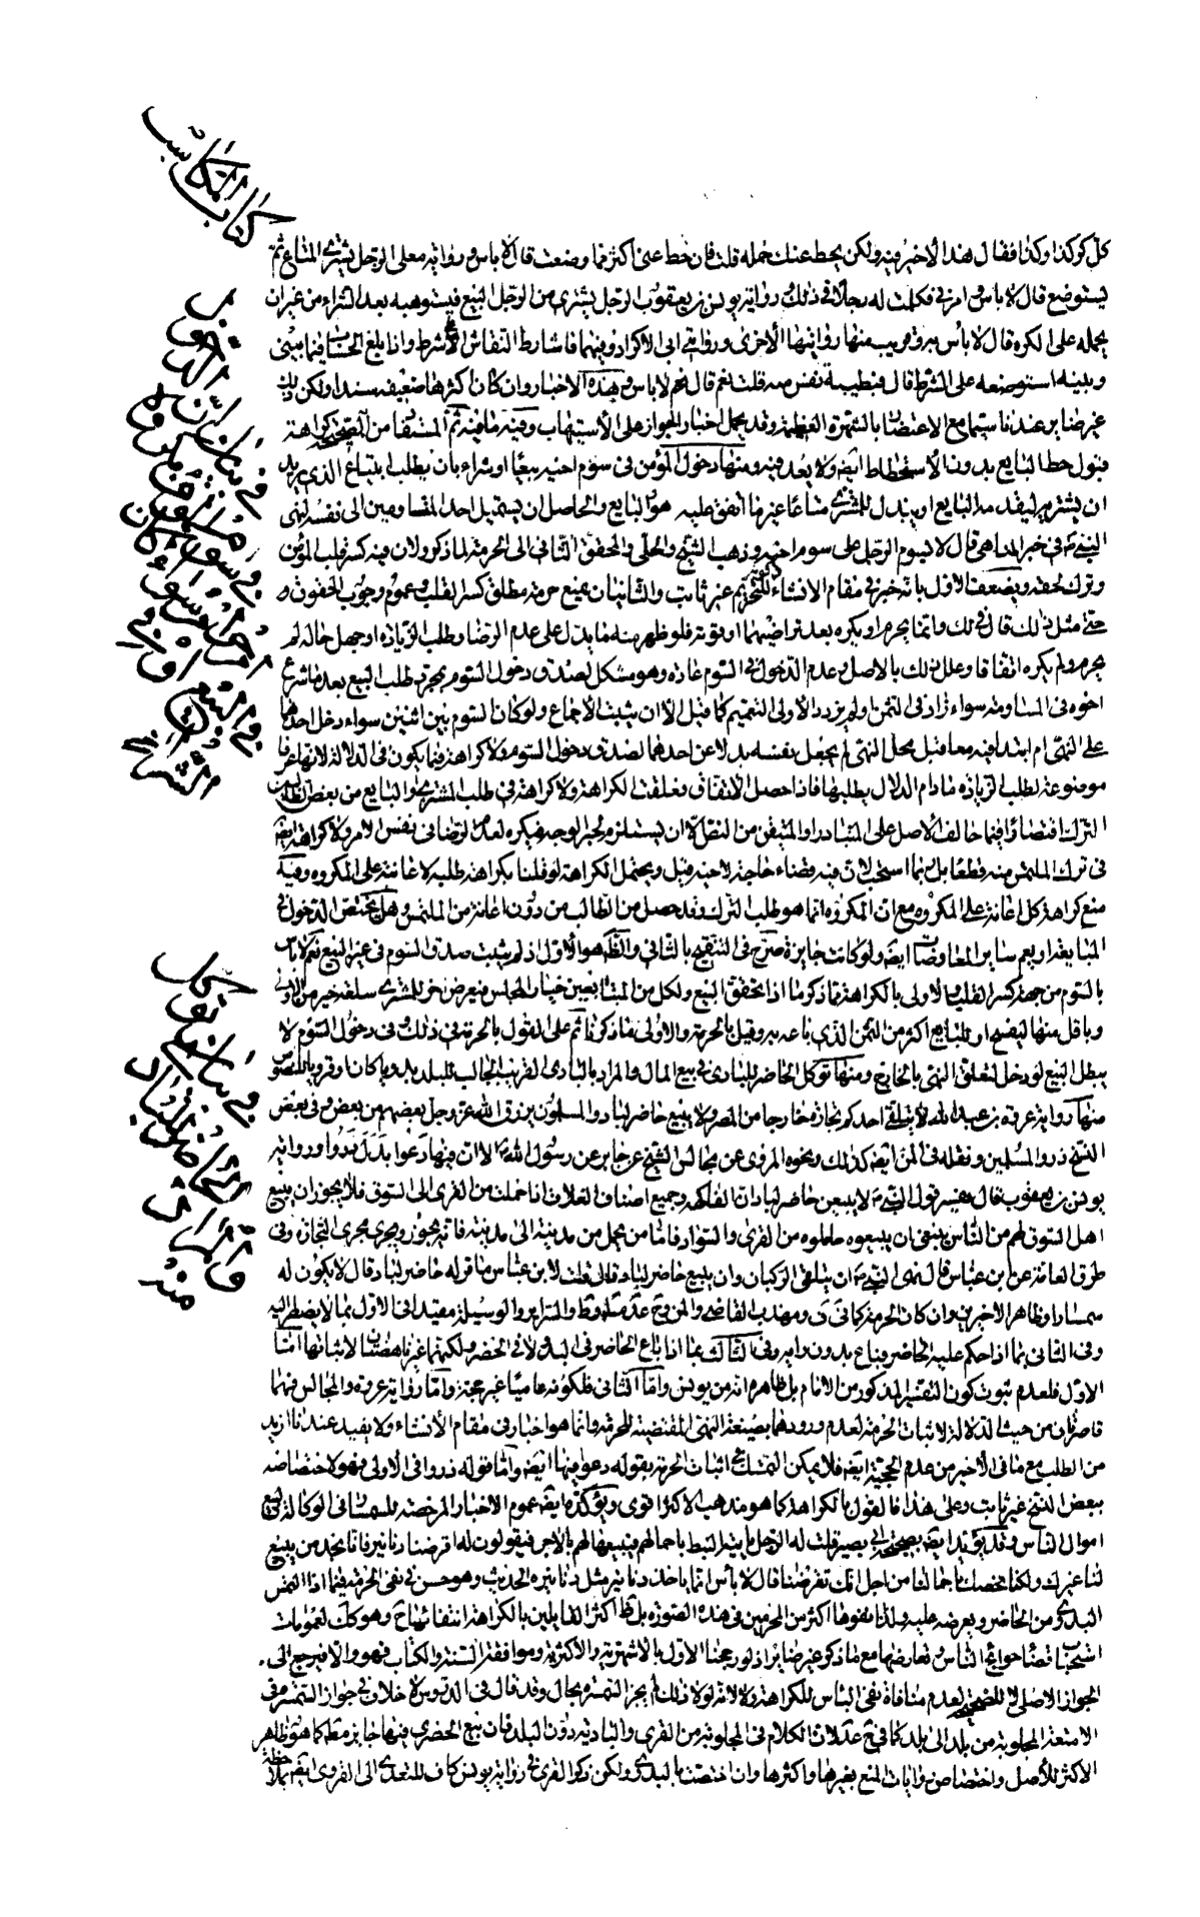 كتاب المكاسب
كل كر كذا وكذا فقال هذا لا خير فيه ولكن يحط عنك جملة قلت فان حط عني اكثر مما وضعت قال لا باس ورواية معلى الرجل يشتري المتاع ثم
يستوضع قال لا باس وامرني فكلمت له رجلا في ذلك ورواية يونس بن يعقوب الرجل يشتري من الرجل البيع فيستوهبه بعد الشراء من غير ان
يحمله على الكره قال لا بأس به وقريب منها روايتها الاخرى ورواية ابي الاكراد وفيهما فاشارط النقاش على شرط واذا بلغ الحساب فيما بيني
وبينه استوضعه على الشرط قال فبطيبة نفس منه قلت نعم قال نعم لا باس وهذه الاخبار وان كان اكثرها ضعيفة سندا ولكن ذلك
غير ضاير عندنا سيما مع الاعتضاد بالشهرة العظيمة وقد يحمل اخبار الجواز على الاستيهاب وفيه ما فيه ثم المستفاد من الصحيحة كراهة
قبول حط البايع بدون الاستحطاط ايضا ولا بعد فيه ومنها دخول المؤمن في سوم اخيه بيعا او شراء بان يطلب ابتياع الذي يريد
ان يشتريه ليقدمه البايع او يبذل للمشتري متاعا غير ما اتفق عليه هو والبايع والحاصل ان يستميل احد المتساومين الى نفسه لنهي
النبي ص في خبر المناهي قال لا يسوم الرجل على سوم اخيه وذهب الشيخ والحلي والمحقق الثاني الى الحرمة لما ذكر ولان فيه كسر قلب المؤمن
وترك لحقه ويضعف الاول بانه خبر في مقام الانشاء وكونه للتحريم غير ثابت والثانيان بمنع حرمة مطلق كسر القلب وعموم وجوب الحقوق و
حتى مثل ذلك قال في لك وانما يحرم او يكره بعد تراضيهما او قربه فلو ظهر منه ما يدل على عدم الرضا وطلب الزيادة او جهل حاله لم
يحرم ولم يكره اتفاقا وعلل ذلك بالاصل وعدم الدخول في السوم عادة وهو مشكل لصدق دخول السوم بمجرد طلب البيع بعد ما شرع
اخوه في المساومة سواء زاد في الثمن ولم يزد والاولى التعميم كما قيل الا ان يثبت الاجماع ولو كان السوم بين اثنين سواء دخل احدهما
على النهي ام ابتدءا فيه معا قبل محل النهي لم يجعل نفسه بدلا عن احدهما لصدق دخول السوم ولا كراهة فيما يكون في الدلالة لانها عرفا
موضوعة لطلب الزيادة ما دام الدلال يطلبها فاذا حصل الاتفاق تعلقت الكراهة ولا كراهة في طلب المشتري او البايع من بعض الطالبين
الترك اقتصارا فيما خالف الاصل على المتبادر او المتيقن من النقل الا ان يستلزم جبر الوجه فيكره لعدم الرضا في نفس الامر ولا كراهة ايضا
في ترك الملتمس منه قطعا بل ربما استحب لان فيه قضاء حاجة لاخيه وقيل ويحتمل الكراهة لو قلنا بكراهة طلبه لاعانته على المكروه وفيه
منع كراهة كل اعانة على المكروه مع ان المكروه انما هو طلب الترك وقد حصل من الطالب من دون اعانة من الملتمس وهل يختص الدخول في
المبايعة او يعم ساير المعاوضات ايضا ولو كانت جايزة صرح في التنقيح بالثاني والظاهر هو الاول اذ لم يثبت صدق السوم في غير البيع نعم لا باس
بالسوم من جهة كسر القلب والاولى بالكراهة مما ذكر ما اذا تحقق البيع ولكل من المتبايعين خيار المجلس فيعرض اخر للمشتري سلعة خير من الاولى
وباقل منها ليفسخ او للبايع اكثر من الثمن الذي باعه به وقيل بالحرمة والاولى ما ذكرنا ثم على القول بالحرمة في ذلك وفي دخول السوم لا
يبطل البيع لو دخل لتعلق النهي بالخارج ومنها توكل الحاضر للبادي في بيع المال والمراد بالبادي الغريب الجالب للبلد بدويا كان او قرويا للنصوص
منها رواية عروة بن عبد الله لا يتلقى احدكم تجارة خارجا من المصر ولا يبيع حاضر لباد والمسلمون يرزق الله عز وجل بعضهم من بعض وفي بعض
النسخ ذروا المسلمين ونقله في المنتهى ايضا كذلك ونحوه المروي عن مجالس الشيخ عن جابر عن رسول الله ص الا ان فيها دعوا بدل ذروا ورواية
يونس بن يعقوب قال تفسير قول النبي ص لا يبيعن حاضر لباد ان الفاكهة وجميع اصناف الغلات اذا حملت من القرى الى السوق فلا يجوز ان يبيع
اهل السوق لهم من الناس ينبغي ان يبيعوه حاملوه من القرى والسواد فاما من يحمل من مدينة الى مدينة فانه يجوز ويجري مجرى التجارة وفي
طرق العامة عن ابن عباس قال نهى النبي ص ان يتلقى الركبان وان يبيع حاضر لباد قال قلت لابن عباس ما قوله حاضر لباد قال لا يكون له
سمسارا وظاهر الاخيرين وان كان الحرمة كما في ومهذب القاضي والسرائر والوسيلة مقيدا في الاول بما لا يضطر اليه
وفي الثاني بما اذا حكم عليه الحاضر وباع بدون رايه وفي الثالث بما اذا باع الحاضر في البدو لا في الحضر ولكنهما غير ناهضتان لاثباتها اما
الاول فلعدم ثبوت كون التفسير المذكور من الامام بل ظاهره انه من يونس واما الثاني فلكونه عاميا غير حجة واما رواية عروة والمجالس فهما
قاصرتان من حيث الدلالة لاثبات الحرمة لعدم ورودهما بصيغة النهي المقتضية للحرمة وانما هو اخبار في مقام الانشاء ولا يفيد عندنا ازيد
من الطلب مع ما في الاخير من عدم الحجية ايضا فلا يمكن التمسك في اثبات الحرمة بقوله دعوا فيها ايضا واما قوله ذروا في الاولى فهو لاختصاصه
ببعض النسخ غير ثابت وعلى هذا فالقول بالكراهة كما هو مذهب الاكثر اقوى ويؤكده ايضا عموم الاخبار المرخصة للسمسار في الوكالة لبيع
اموال الناس وقد يؤيد ايضا بصحيحة ابي بصير قلت له الرجل ياتيه النبط باحمالهم فيبيعها لهم بالاجر فيقولون له اقرضنا دنانير فانا نجد من يبيع
لنا غيرك ولكنا نخصك باحمالنا من اجل انك تقرضنا قال لا بأس انما ياخذ دنانير مثل دنانيره الحديث وهو حسن في نفي الحرمة فيما اذا التمس
البدوي من الحاضر ويعرضه عليه ولذا نفوها اكثر المحرمين في هذه الصورة بل ظاهر اكثر القايلين بالكراهة انتفائها ح وهو كذلك لعمومات
استحباب قضاء حوائج الناس وتعارضها مع ما ذكر غير ضاير اذ لو رجحنا الاول بالاشهرية والاكثرية وموافقة السنة والكتاب فهو والا فيرجع الى
الجواز الاصلي لا للصحيحة لعدم منافاة نفي الباس للكراهة ولا لانه لولا ذلك لم يجز السمسرة بحال وقد قال في الدروس لا خلاف في جواز السمسرة في
الامتعة المجلوبة من بلد الى بلد كما في لان الكلام في المجلوبة من القرى والبادية دون البلد فان بيع الحضري فيها جايز مطلقا كما هو ظاهر
الاكثر للاصل واختصاص روايات المنع بغيرها واكثرها وان اختصت بالبدوي ولكن ذكر القرى في رواية يونس كاف للتعدي الى القروي ايضا بملاحظة
في بيان ان الدخول
في سوم المؤمن مكروه
في البيع او في
الشراء
في بيان توكل
الحاضر للباد
والمراد
منه